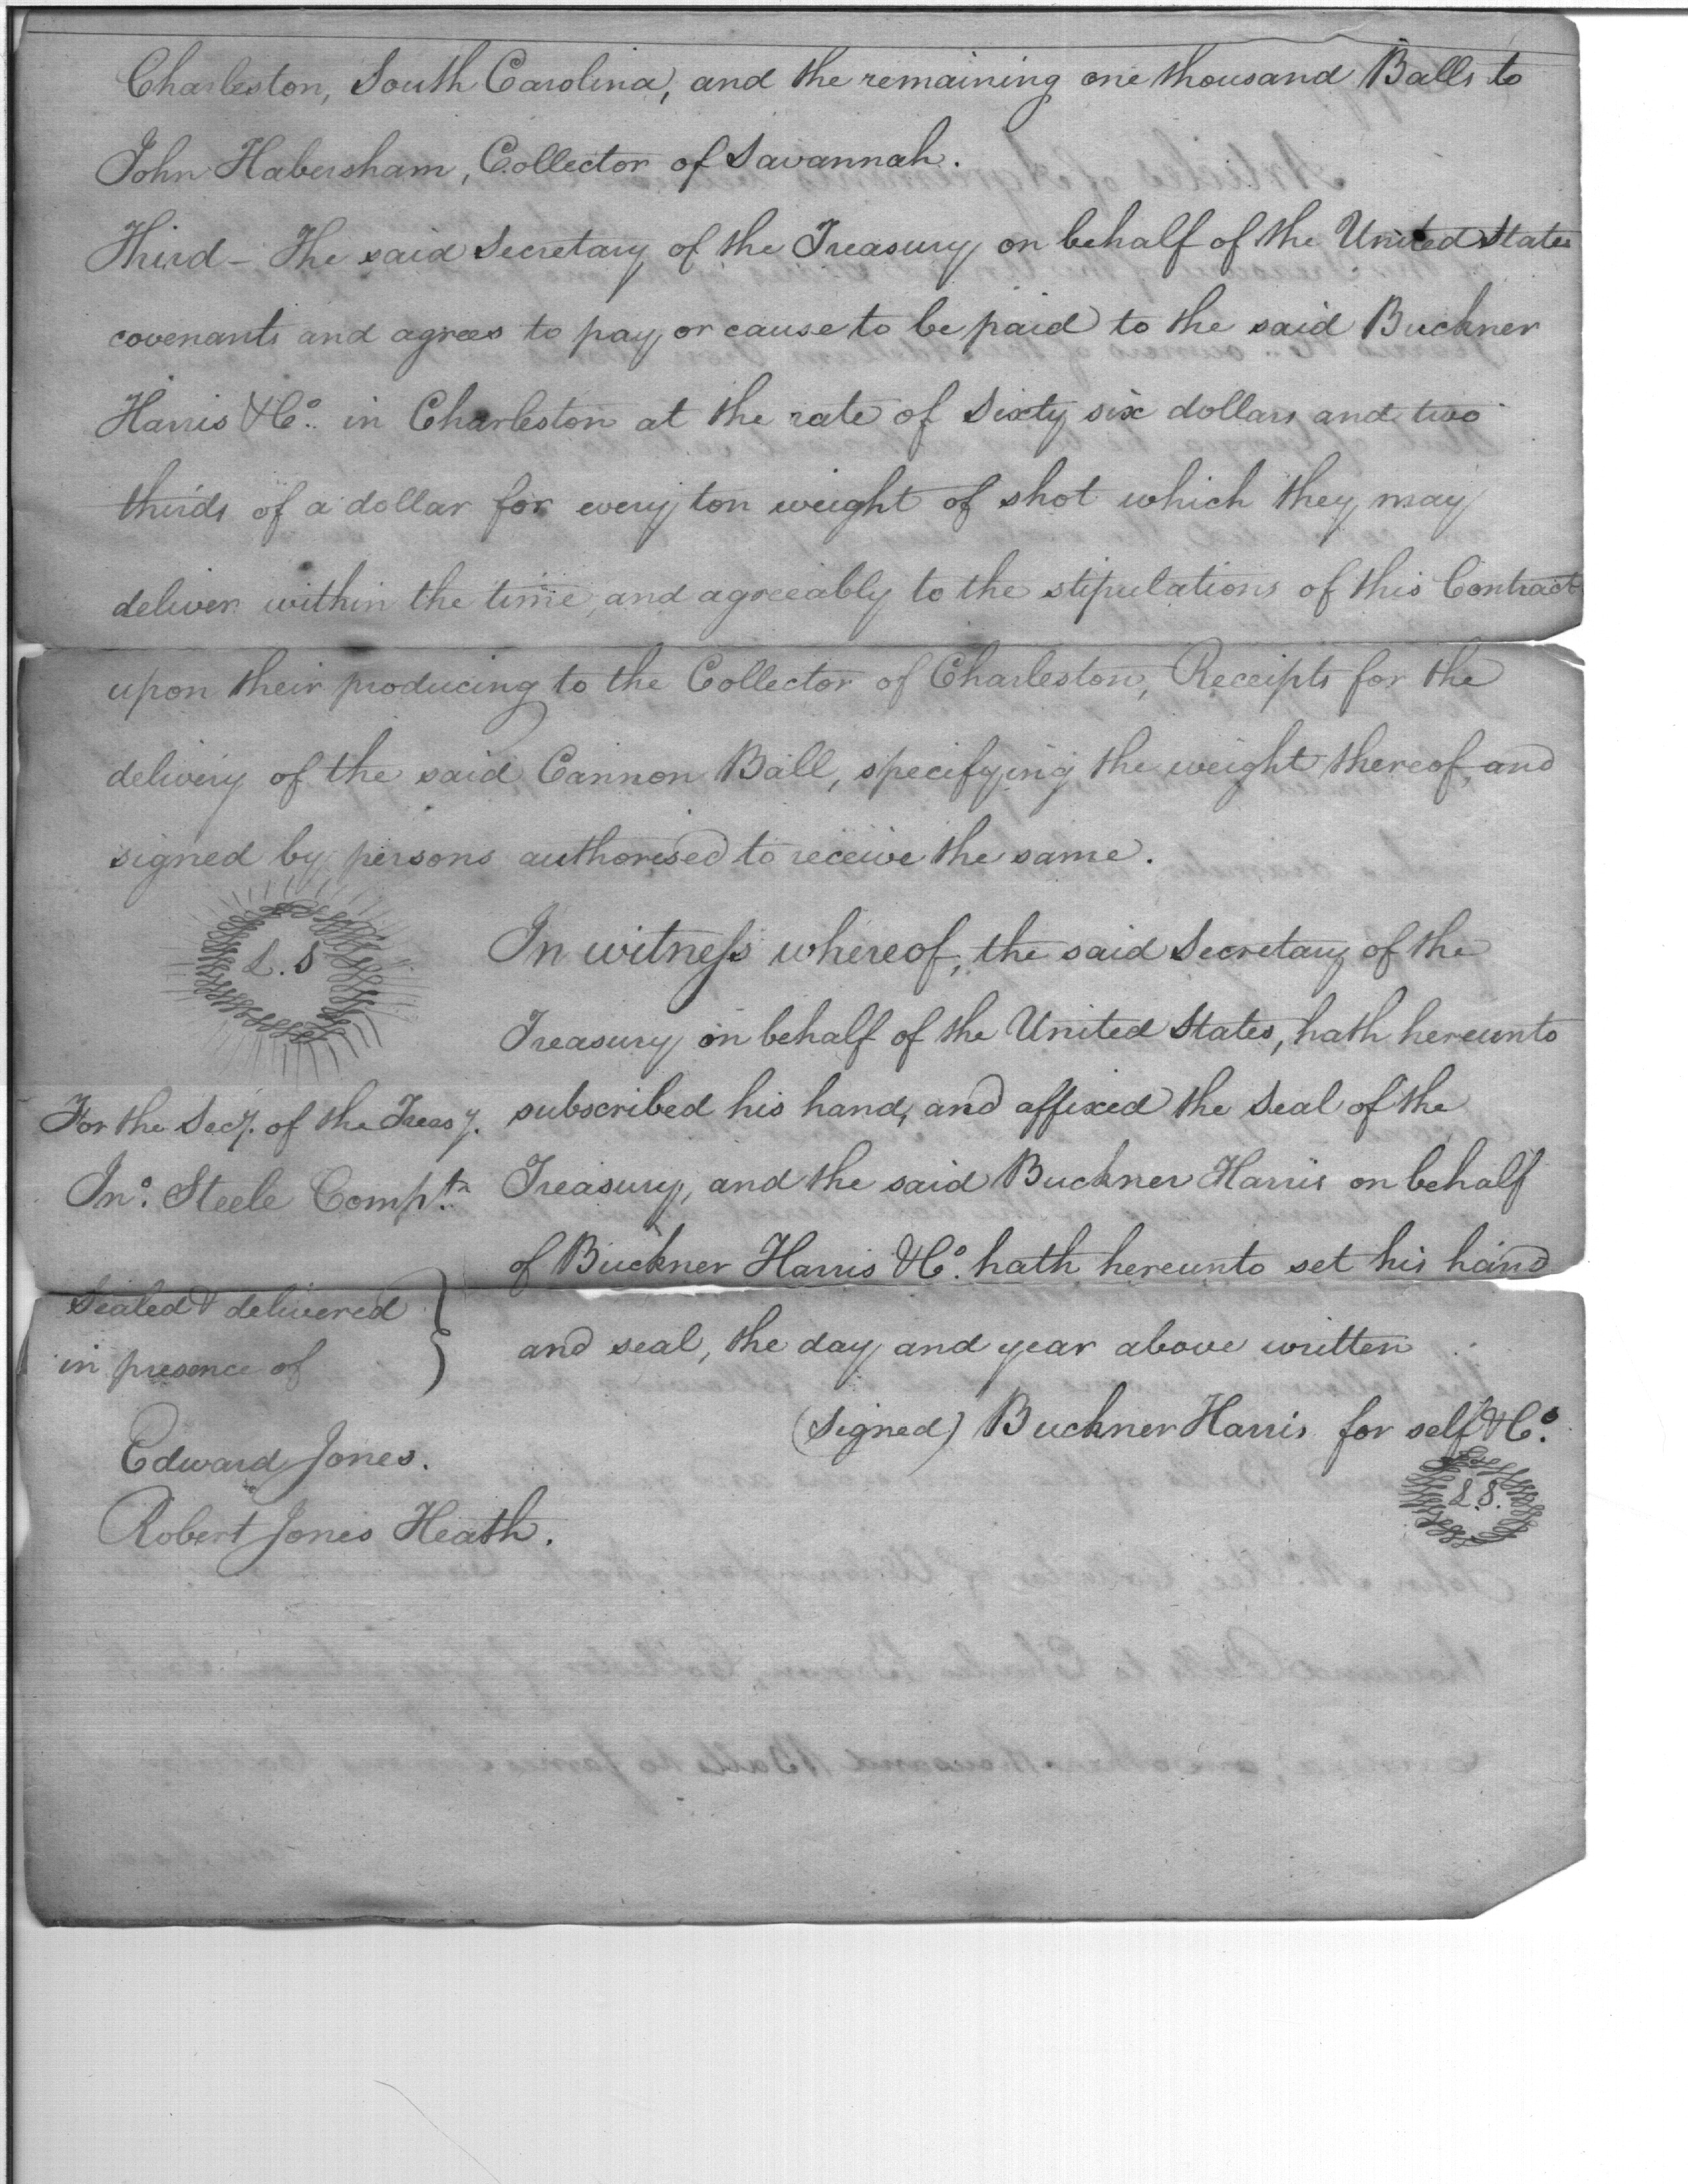 Charleston, South Carolina, and the remaining one thousand Balls to
John Habersham, Collector of Savannah.
Third – The said Secretary of the Treasury on behalf of the United States
covenants and agrees to pay, or cause to be paid to the said Buckner
Harris & Co. in Charleston at the rate of Sixty six dollars and two
thirds of a dollar for every ton weight of shot which they may
deliver within the time, and agreeably to the stipulations of this Contract
upon their producing to the Collector of Charleston, Receipts for the
delivery of the said Cannon Ball, specifying the weight thereof, and
signed by persons authorised to receive the same.
L.S
In witness whereof, the said Secretary of the
Treasury on behalf of the United States, hath hereunto
subscribed his hand, and affixed the Seal of the
Treasury, and the said Buckner Harris on behalf
of Buckner Harris & Co. hath hereunto set his hand
and seal, the day and year above written
For the Secy. of the Treasy.
Jno. Steele Comptr.
Sealed & delivered
in presence of
Edward Jones.
Robert Jones Heath.
(Signed) Buckner Harris for self & Co.
L.S.